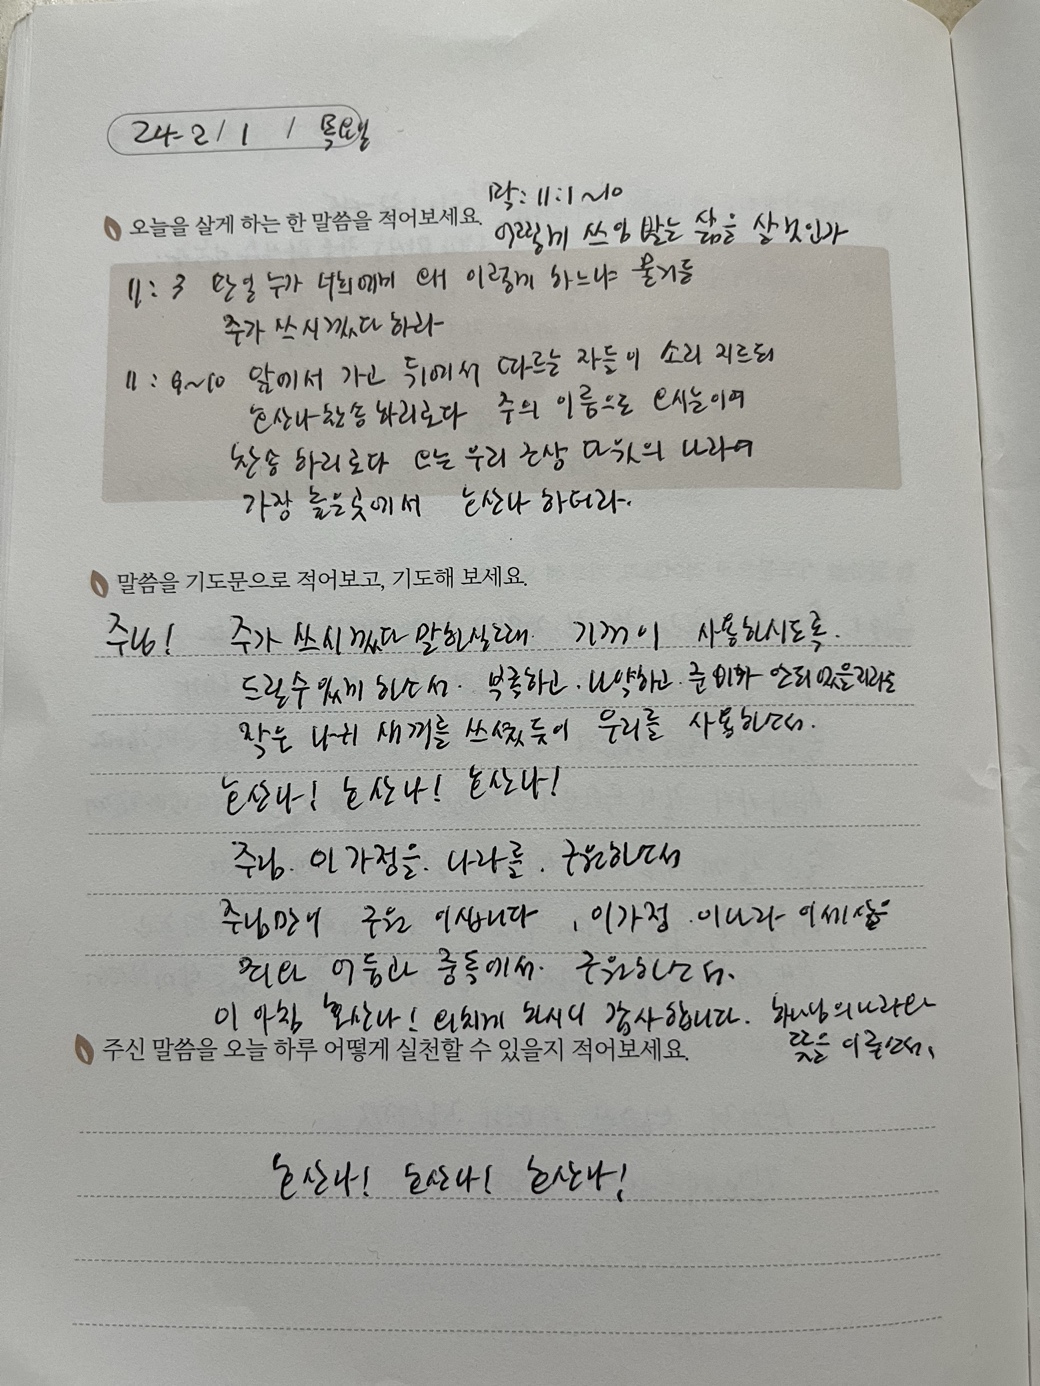 24-2/1 / 목요일
막: 11:1~10
오늘을 살게 하는 한 말씀을 적어보세요.
어떻게 쓰임 받는 삶을 살것인가
11:3 만일 누가 너희에게 왜 이렇게 하느냐 묻거든
주가 쓰시겠다 하라
11:9~10 앞에서 가고 뒤에서 따르는 자들이 소리 지르되
호산나 찬송하리로다 주의 이름으로 오시는이여
찬송 하리로다 오는 우리 조상 다윗의 나라여
가장 높은곳에서 호산나 하더라.
말씀을 기도문으로 적어보고, 기도해 보세요.
주님! 주가 쓰시겠다 말하실때 기꺼이 사용하시도록.
드릴수있게 하소서. 부족하고. 나약하고. 준비화 안되었을지라도
작은 나귀 새끼를 쓰셨듯이 우리를 사용하소서.
호산나! 호산나! 호산나!
주님. 이 가정을. 나라를. 구원하소서
주님만이 구원 이십니다, 이가정. 이나라 이세상을
죄와 어둠과 중독에서. 구원하소서.
이 아침 호산나! 외치게 하시니 감사합니다. 하나님의나라와
뜻을 이루소서.
주신 말씀을 오늘 하루 어떻게 실천할 수 있을지 적어보세요.
호산나! 호산나! 호산나!